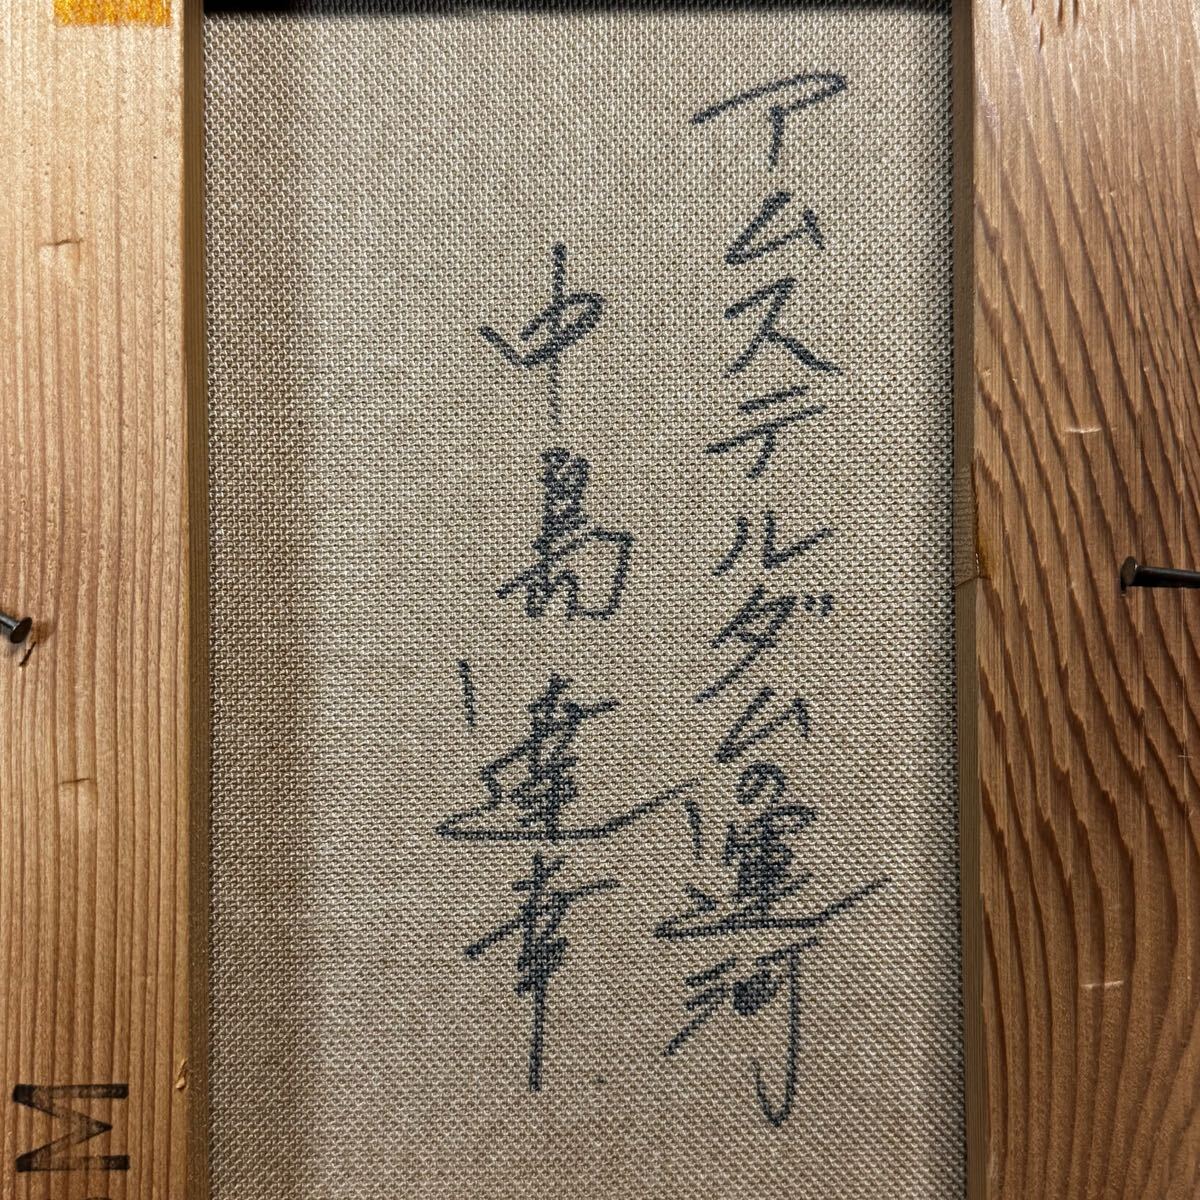 アムステルダムの運河
中島達幸
M